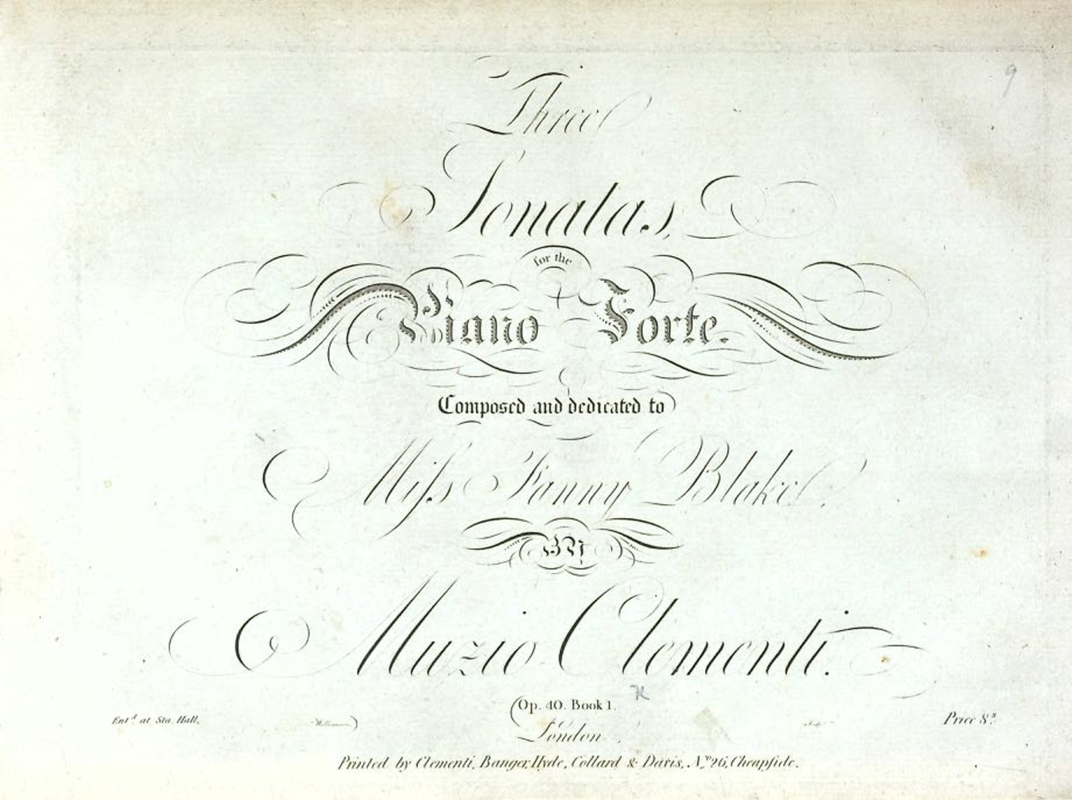 9
Three
Sonatas,
for the
Piano Forte.
Composed and dedicated to
Miſs Fanny Blake.
BY
Muzio Clementi.
Op. 40. Book 1.
Entd. at Sta. Hall.
Price 8s.
London
Printed by Clementi, Banger, Hyde, Collard & Davis, No. 26, Cheapſide.